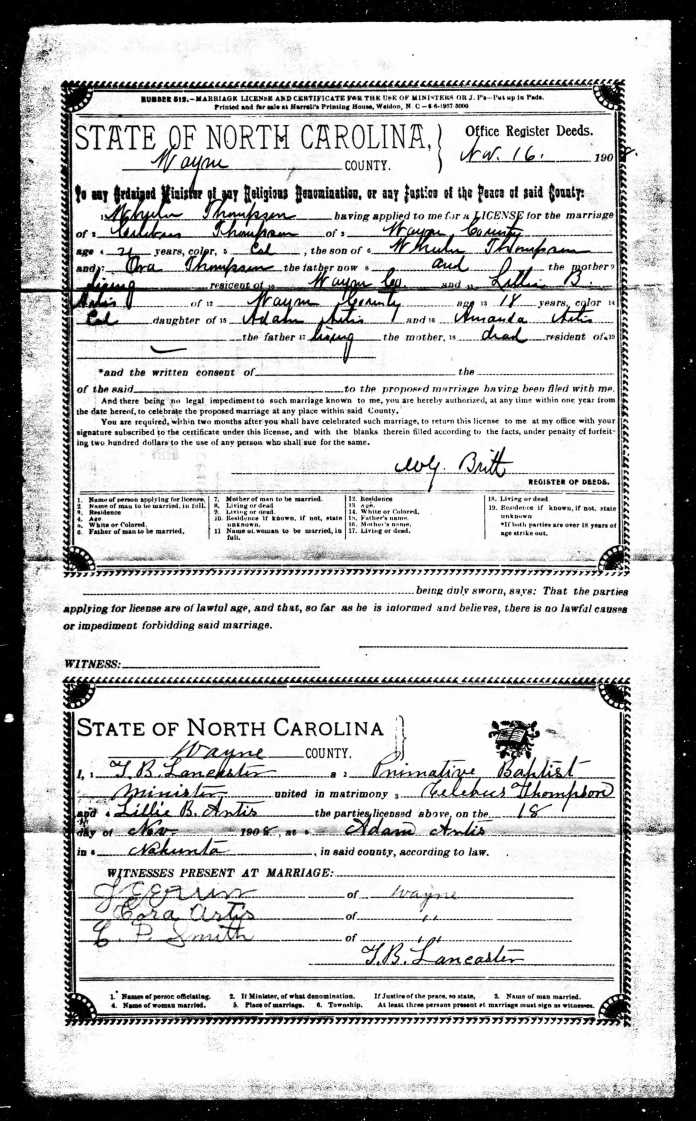 NUMBER 512.—MARRIAGE LICENSE AND CERTIFICATE FOR THE USE OF MINISTERS OR J. P's—Put up in Pads.
Printed and for sale at Harrell's Printing House, Weldon, N. C.—8-6-1907 3000
STATE OF NORTH CAROLINA,
Wayne COUNTY.
Office Register Deeds.
Nov. 16. 1908.
To any Ordained Minister of any Religious Denomination, or any Justice of the Peace of said County:
Thompson having applied to me for a LICENSE for the marriage
of 2 Thompson of 3 Wayne County
age 4 21 years, color, 5 Col , the son of 6 Thompson
and 7 Ora Thompson the father now 8 and the mother 9
living resident of 10 Wayne Co. and 11 Lillie B.
Artis of 12 Wayne County age 13 18 years, color 14
Col daughter of 15 Adam Artis and 16 Amanda Artis
the father 17 living the mother, 18 dead resident of 19
*and the written consent of the
of the said to the proposed marriage having been filed with me.
And there being no legal impediment to such marriage known to me, you are hereby authorized, at any time within one year from
the date hereof, to celebrate the proposed marriage at any place within said County.
You are required, within two months after you shall have celebrated such marriage, to return this license to me at my office with your
signature subscribed to the certificate under this license, and with the blanks therein filled according to the facts, under penalty of forfeit-
ing two hundred dollars to the use of any person who shall sue for the same.
Britt
REGISTER OF DEEDS.
1. Name of person applying for license.
2. Name of man to be married, in full.
3. Residence
4. Age
5. White or Colored.
6. Father of man to be married.
7. Mother of man to be married.
8. Living or dead
9. Living or dead.
10. Residence if known, if not, state
unknown.
11 Name of woman to be married, in
full.
12. Residence
13 Age.
14. White or Colored.
15. Father's name.
16. Mother's name.
17. Living or dead.
18. Living or dead
19. Residence if known, if not, state
unknown
*If both parties are over 18 years of
age strike out.
being duly sworn, says: That the parties
applying for license are of lawful age, and that, so far as he is informed and believes, there is no lawful causes
or impediment forbidding said marriage.
WITNESS:
STATE OF NORTH CAROLINA
Wayne COUNTY.
I, 1 T. B. Lancaster a 2 Primative Baptist
Minister united in matrimony 3 Celebus Thompson
and 4 Lillie B. Artis the parties licensed above, on the 18
day of Nov. 1908, at 5 Adam Artis
in 6 Nahunta , in said county, according to law.
WITNESSES PRESENT AT MARRIAGE:
of Wayne
Cora Artis of "
Smith of "
T. B. Lancaster
1. Names of person officiating. 2. If Minister, of what denomination. If Justice of the peace, so state, 3. Name of man married.
4. Name of woman married. 5. Place of marriage. 6. Township. At least three persons present at marriage must sign as witnesses.